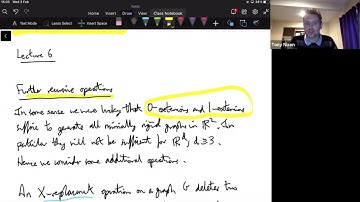 Class Notebook
Tony Nixon
Lecture 6
Further recursive operations
In some sense we were lucky that 0-extensions and 1-extensions
suffice to generate all minimally rigid graphs in ℝ². In
particular they will not be sufficient for ℝᵈ, d≥3.
Hence we consider some additional operations.
An X-replacement operation on a graph G deletes two